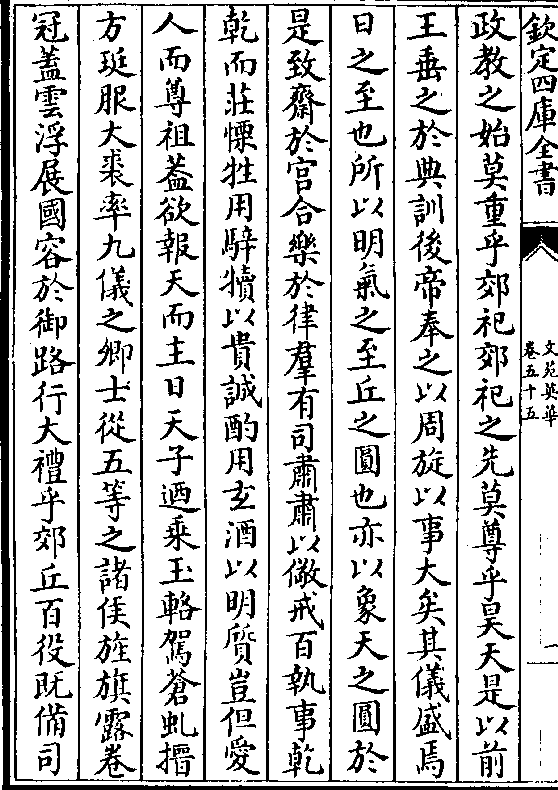 欽定四庫全書
文苑英華
卷五十五
一
政教之始莫重乎郊祀郊祀之先莫尊乎昊天是以前
王垂之於典訓後帝奉之以周旋以事大矣其儀盛焉
日之至也所以明氣之至丘之圓也亦以象天之圓於
是致齋於宫合樂於律羣有司肅肅以儆戒百執事乾
乾而莊慄牲用騂犢以貴誠酌用玄酒以明質豈但愛
人而尊祖葢欲報天而主日天子迺乗玉輅駕蒼虬搢
方珽服大裘率九儀之卿士從五等之諸侯旌旗露卷
冠蓋雲浮展國容於御路行大禮乎郊丘百役既備司